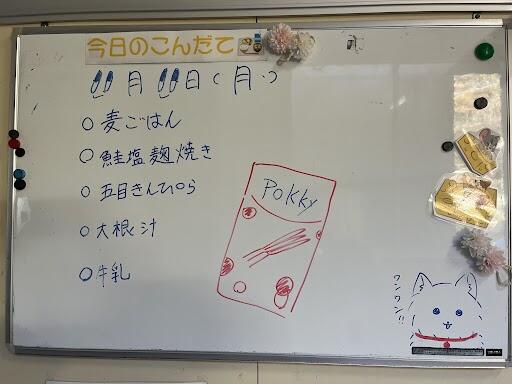 今日のこんだて
11月11日(月)
○麦ごはん
○鮭塩麹焼き
○五目きんぴら
○大根汁
○牛乳
Pokky
ワンワン!!